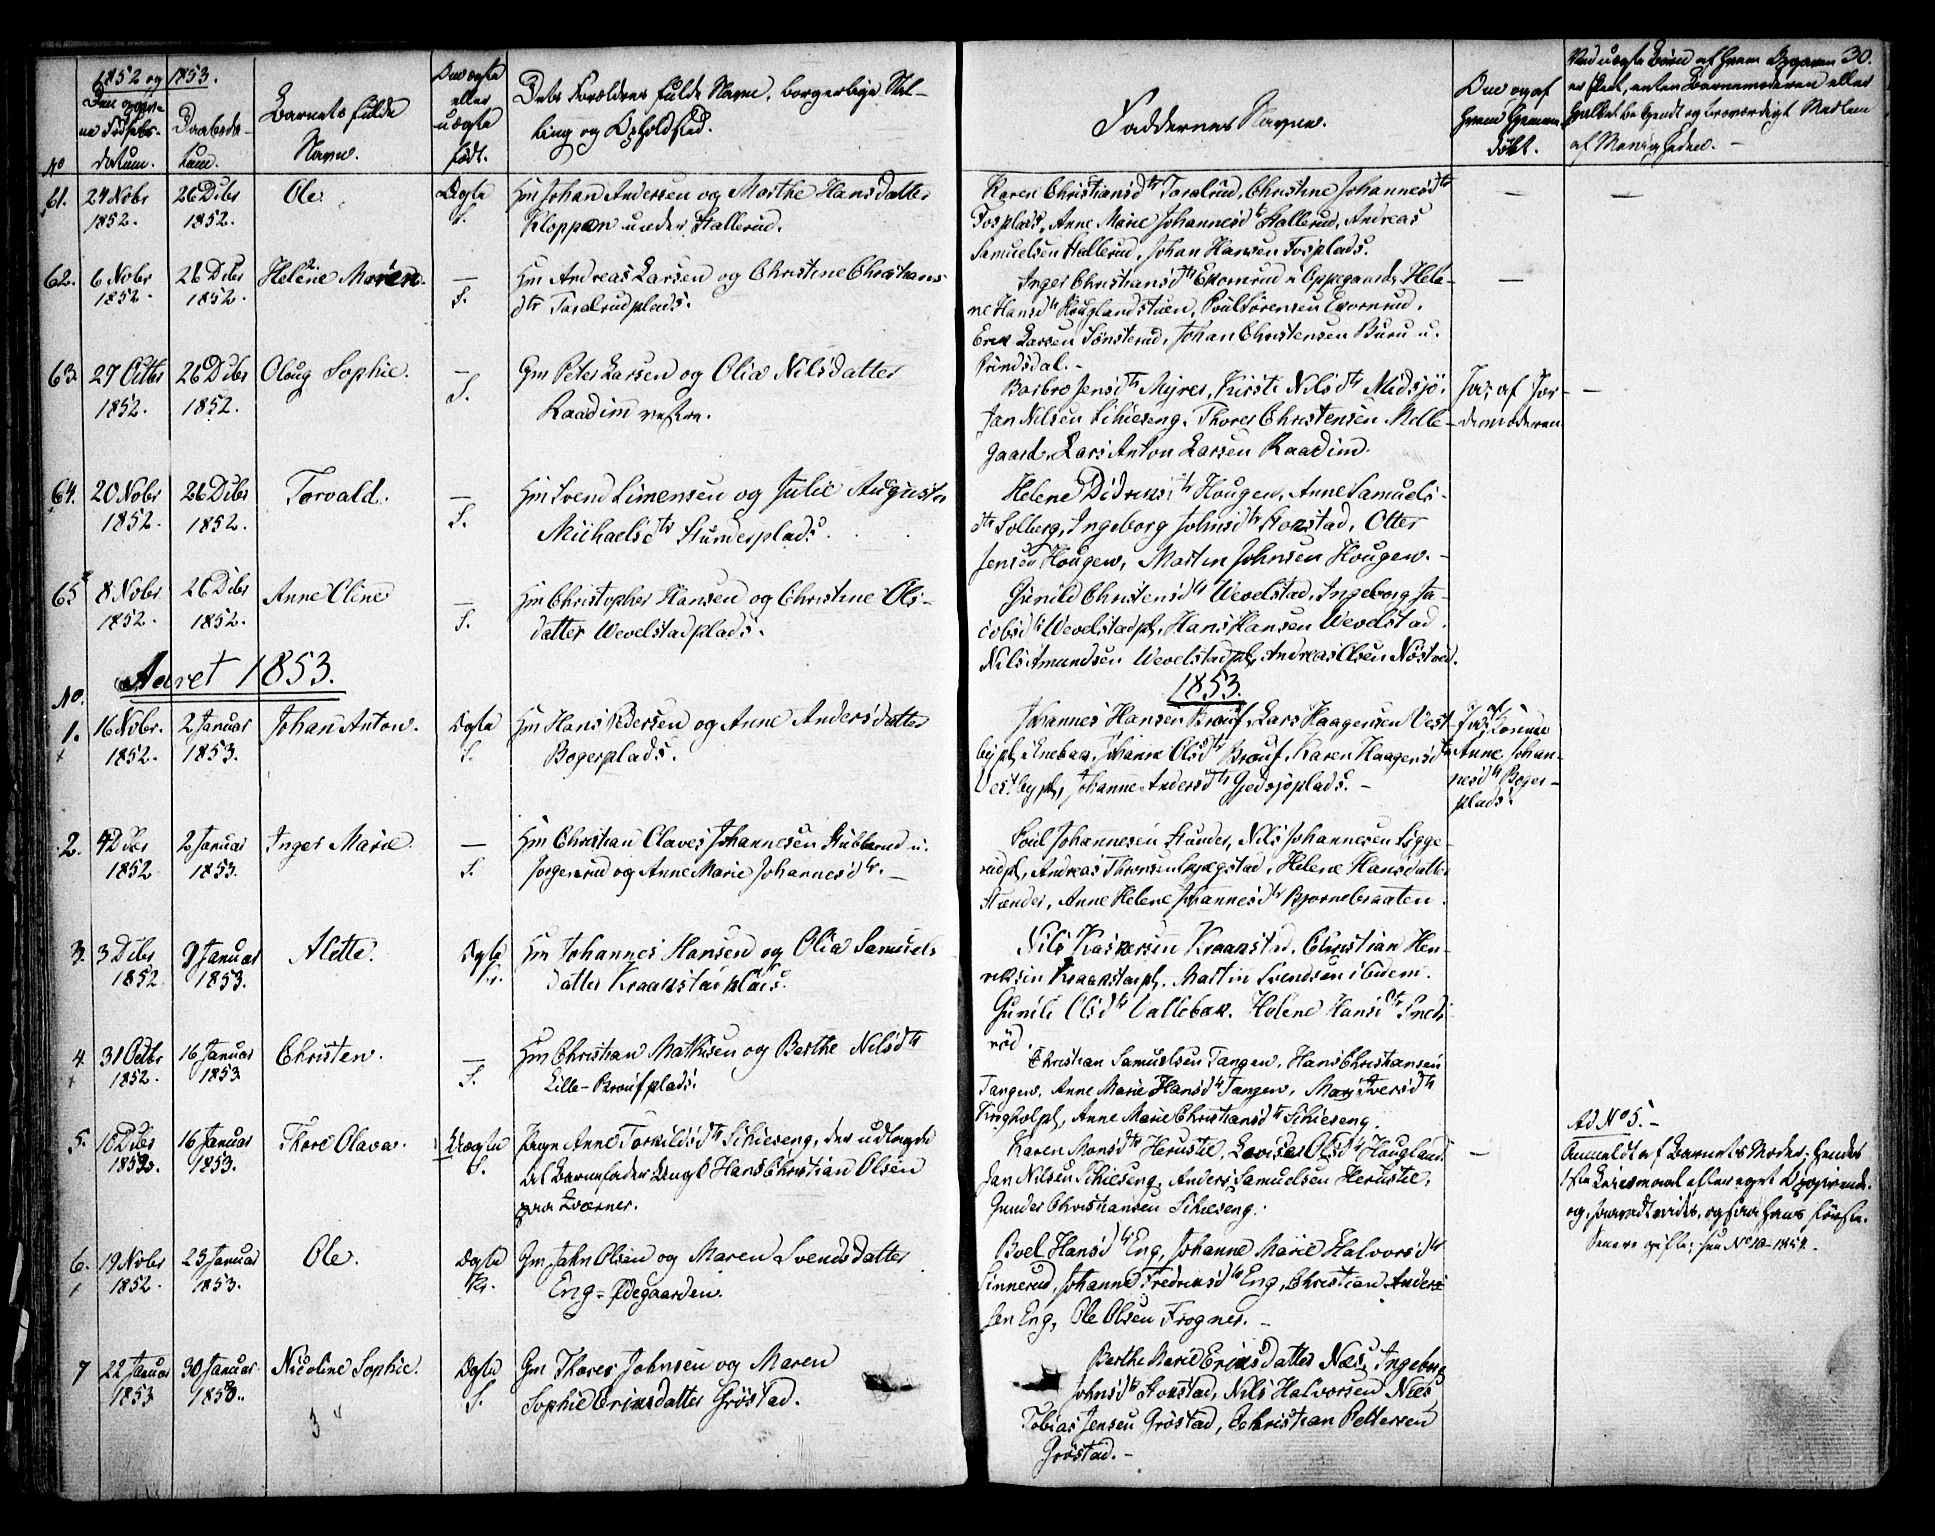 1852 og 1853.
No
Den opgivne Fødselsdatum.
Daabsdatum.
Barnets fulde Navn.
Om ægte eller uægte født.
Dets Forældres fulde Navn, borgerlige Stilling og Opholdsted.
Faddernes Navne.
Om og af hvem hjemmedøbt.
30.
Ved uægte Børn af hvem Opgaven
er skeet, enten Barnemoderen eller
hvilket bekjendt og troværdigt Medlem
af Menigheden. -
61. 24 Nobr 1852. 26 Dcbr 1852. Ole. Ægte S.
Gm Johan Andersen og Marthe Hansdatter
Kloppen under Hallerud.
Karen Christiansdtr Taralrud, Christine Johannesdtr
Fosplads, Anne Marie Johannesdtr Hallerud, Andreas
Samuelsen Hallerud, Johan Hansen Fosplads.
62. 6 Nobr 1852. 26 Dcbr 1852. Helene Maren. — S.
Gm Andreas Larsen og Christine Christians
dtr Taralrudplads.
Inger Christiansdtr Ekornrud i Oppegaard, Hele-
ne Hansdtr Houglandstuen, Poul Sørensen Ekornrud,
Erik Larsen Sønsterud, Johan Christensen Buru u.
Prindsdal. -
63. 27 Octbr 1852. 26 Dcbr 1852. Oloug Sophie. — S.
Gm Peter Larsen og Olia Nilsdatter
Raadim vestre.
Barbro Jensdtr Myrer, Kirsti Nilsdtr Midsjø,
Jan Nilsen Schieseng, Thorer Christensen Melle-
gaard, Lars Anton Larsen Raadim.
Ja; af Jor-
demoderen
64. 20 Nobr 1852. 26 Dcbr 1852. Torvald. — S.
Gm Svend Simensen og Julie Augusta
Michaelsdtr Stunderplads.
Helene Didriksdtr Hougen, Anne Samuels-
dtr Solberg, Ingeborg Johnsdtr Storstad, Otter
Jensen Hougen, Martin Johnsen Hougen. -
65 8 Nobr 1852. 26 Dcbr 1852. Anne Oline — S.
Gm Christopher Hansen og Christine Ols-
datter Wevelstadplads.
Gunild Christensdtr Wevelstad, Ingeborg Ja-
cobsdtr Wevelstadpl, Hans Hansen Wevelstad.
Nils Amundsen Wevelstadpl, Andreas Olsen Nøstved.
No. Aaret 1853.
1853.
1. 16 Nobr. 1852. 2 Januar 1853. Johan Anton. Ægte S.
Gm Hans Pedersen og Anne Andersdatter
Bøgerplads.
Johannes Hansen Brouf, Lars Haagensen Vest-
bypl i Enebak, Johanne Olsdtr Brouf, Karen Haagensdtr
Vestbypl, Johanne Andersdtr Gjedsjøplads. -
Ja; af Konne
Anne Johan-
nesdtr Bøger-
plads.
2. 4 Dcbr 1852 2 Januar 1853. Inger Marie — S.
Gm Christian Claves Johannesen Stubberud u.
Jørgenrud og Anne Marie Johannesdtr. -
Poul Johannesen Stunder, Nils Johannesen Sigge-
rudpl, Andreas Thronsen Opægstad, Helene Hansdatter
Stunder, Anne Helene Johannesdtr Bjørnebraaten.
3. 3 Dcbr 1852 9 Januar 1853. Alette. Ægte Kr.
Gm Johannes Hansen og Olia Samuels
datter Kraakstadplads.
Nils Kaspersen Kraakstad, Christian Hen-
riksen Kraakstadpl. Martin Svendsen ibidem.
Gunild Olsdtr Vallebak. Helene Hansdtr Sneds-
rød.
4 31 Octbr 1852. 16 Januar 1853 Christen. — S.
Gm Christian Mathisen og Berthe Nilsdtr
Lille-Broufplads.
Christian Samuelsen Tangen, Hans Christiansen
Tangen, Anne Marie Hansdtr Tangen, Mari Iversdtr
Krogholpl, Anne Marie Christiansdtr Schieseng.
5. 10 Dcbr 1852. 16 Januar 1853. Thore Olava. Uægte S.
Pigen Anne Torkildsdtr Schieseng, der udlagde
til Barnefader Ungk Hans Christian Olsen
paa Kværner.
Karen Monsdtr Herustil, Lovise Olsdtr Hougland,
Jan Nilsen Schieseng, Anders Samuelsen Herustil,
Gunder Christiansen Schieseng.
Ad No 5. -
Anmeldt af Barnets Moder; hendes
1ste Leiermaal efter eget Opgivende.
og, saavidt vides, ogsaa hans første.
Senere gifte; see No 10-1854.
6. 19 Nobr 1852. 23 Januar 1853. Ole. Ægte Kr.
Gm John Olsen og Maren Svendsdatter
Eng-Ødegaarden.
Boel Hansdtr Eng, Johanne Marie Halvorsdtr
Finnerud, Johanne Fredriksdtr Eng, Christian Ander-
sen Eng, Ole Olsen Frogner. -
7 22 Januar 1853 30 Januar 1853. Nicoline Sophie. Ægte S.
Gm Thorer Johnsen og Maren
Sophie Eriksdatter Grøstad.
Berthe Marie Eriksdatter Næs, Ingeborg
Johnsdtr Stokstad, Nils Halvorsen Næs,
Tobias Jensen Grøstad, Christian Pettersen
Grøstad. -
3